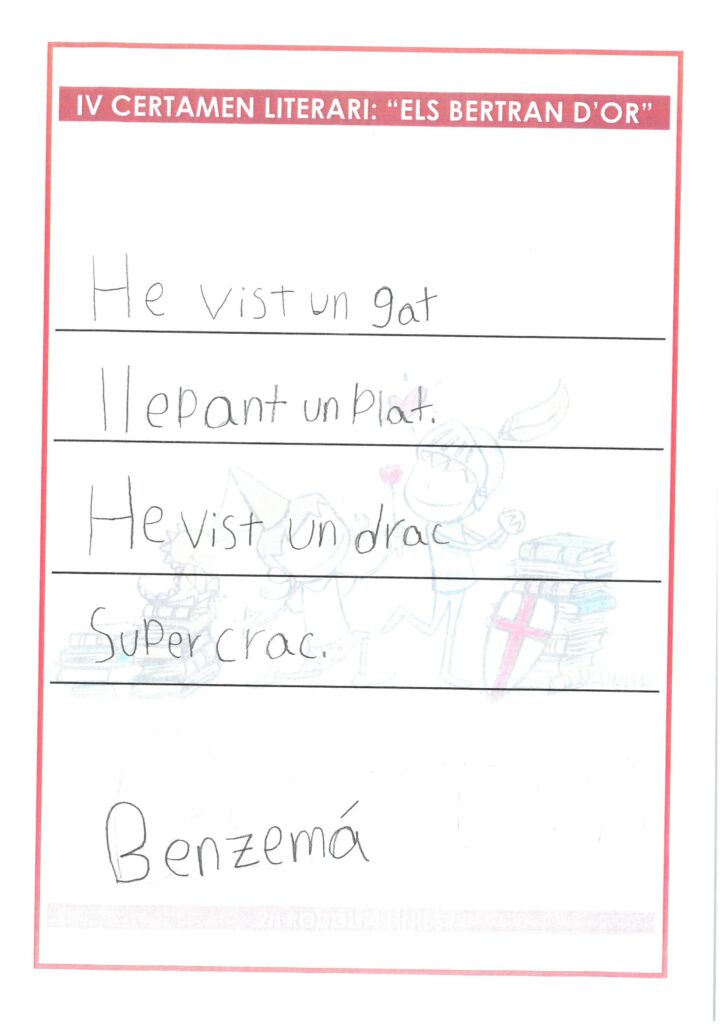 IV CERTAMEN LITERARI: “ELS BERTRAN D’OR”
He vist un gat
llepant un plat.
He vist un drac
super crac.
Benzemá
2n RODOLÍ 4 LÍNIES